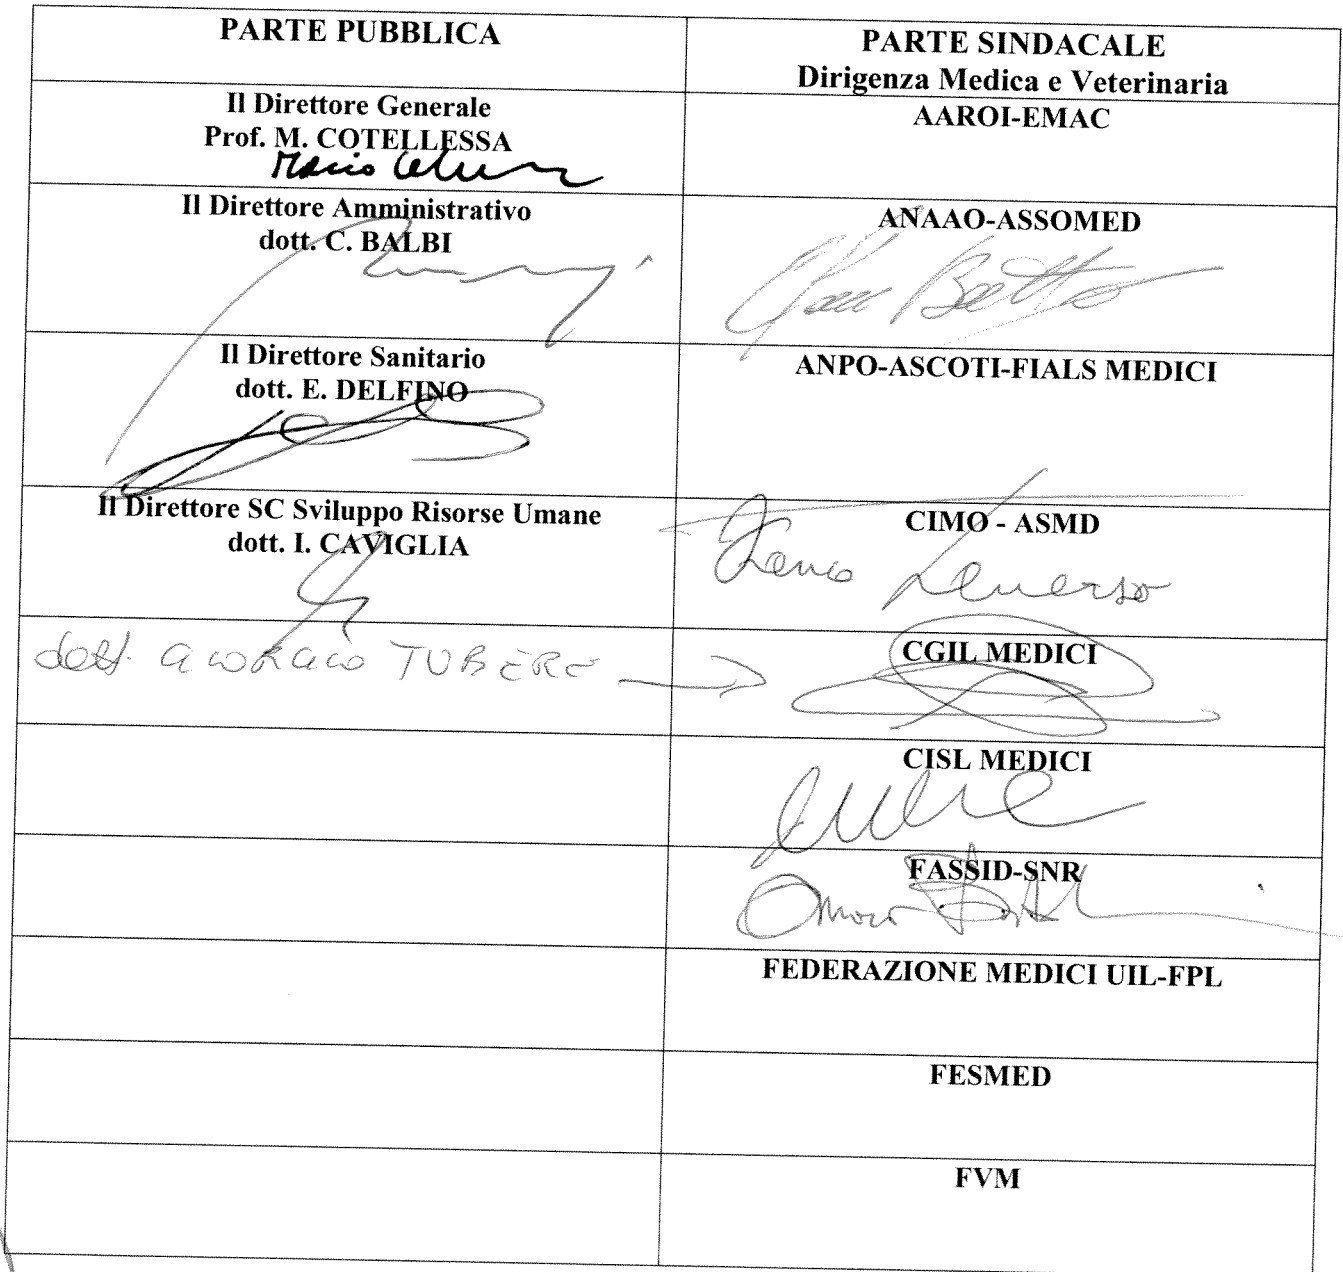 PARTE PUBBLICA
PARTE SINDACALE
Dirigenza Medica e Veterinaria
Il Direttore Generale
Prof. M. COTELLESSA
AAROI-EMAC
Il Direttore Amministrativo
dott. C. BALBI
ANAAO-ASSOMED
Il Direttore Sanitario
dott. E. DELFINO
ANPO-ASCOTI-FIALS MEDICI
Il Direttore SC Sviluppo Risorse Umane
dott. I. CAVIGLIA
CIMO - ASMD
dott. TUBERE
CGIL MEDICI
CISL MEDICI
FASSID-SNR
FEDERAZIONE MEDICI UIL-FPL
FESMED
FVM